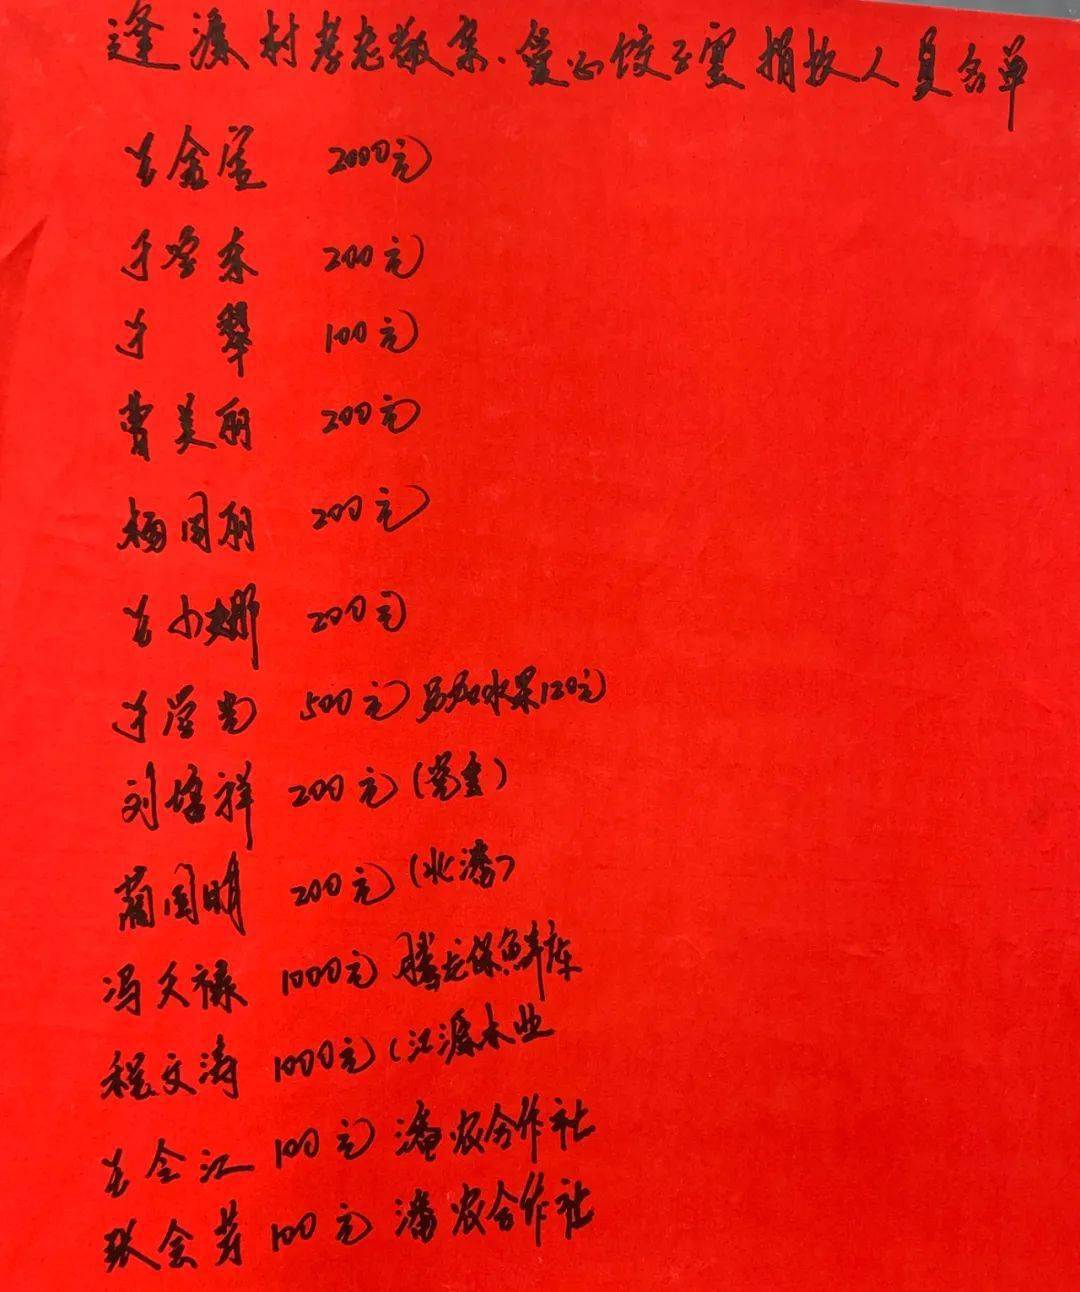 逢源村孝老敬亲·爱心饺子宴捐款人员名单
肖金 2000元
于学东 200元
于翠 100元
曹美丽 200元
杨国丽 200元
肖小娜 200元
于学尚 500元 另加水果120元
刘培祥 200元
蔺国明 200元(北潘)
冯文禄 1000元 腾龙保鲜库
程文涛 1000元(江源木业
肖会江 100元 潘农合作社
张会芳 100元 潘农合作社